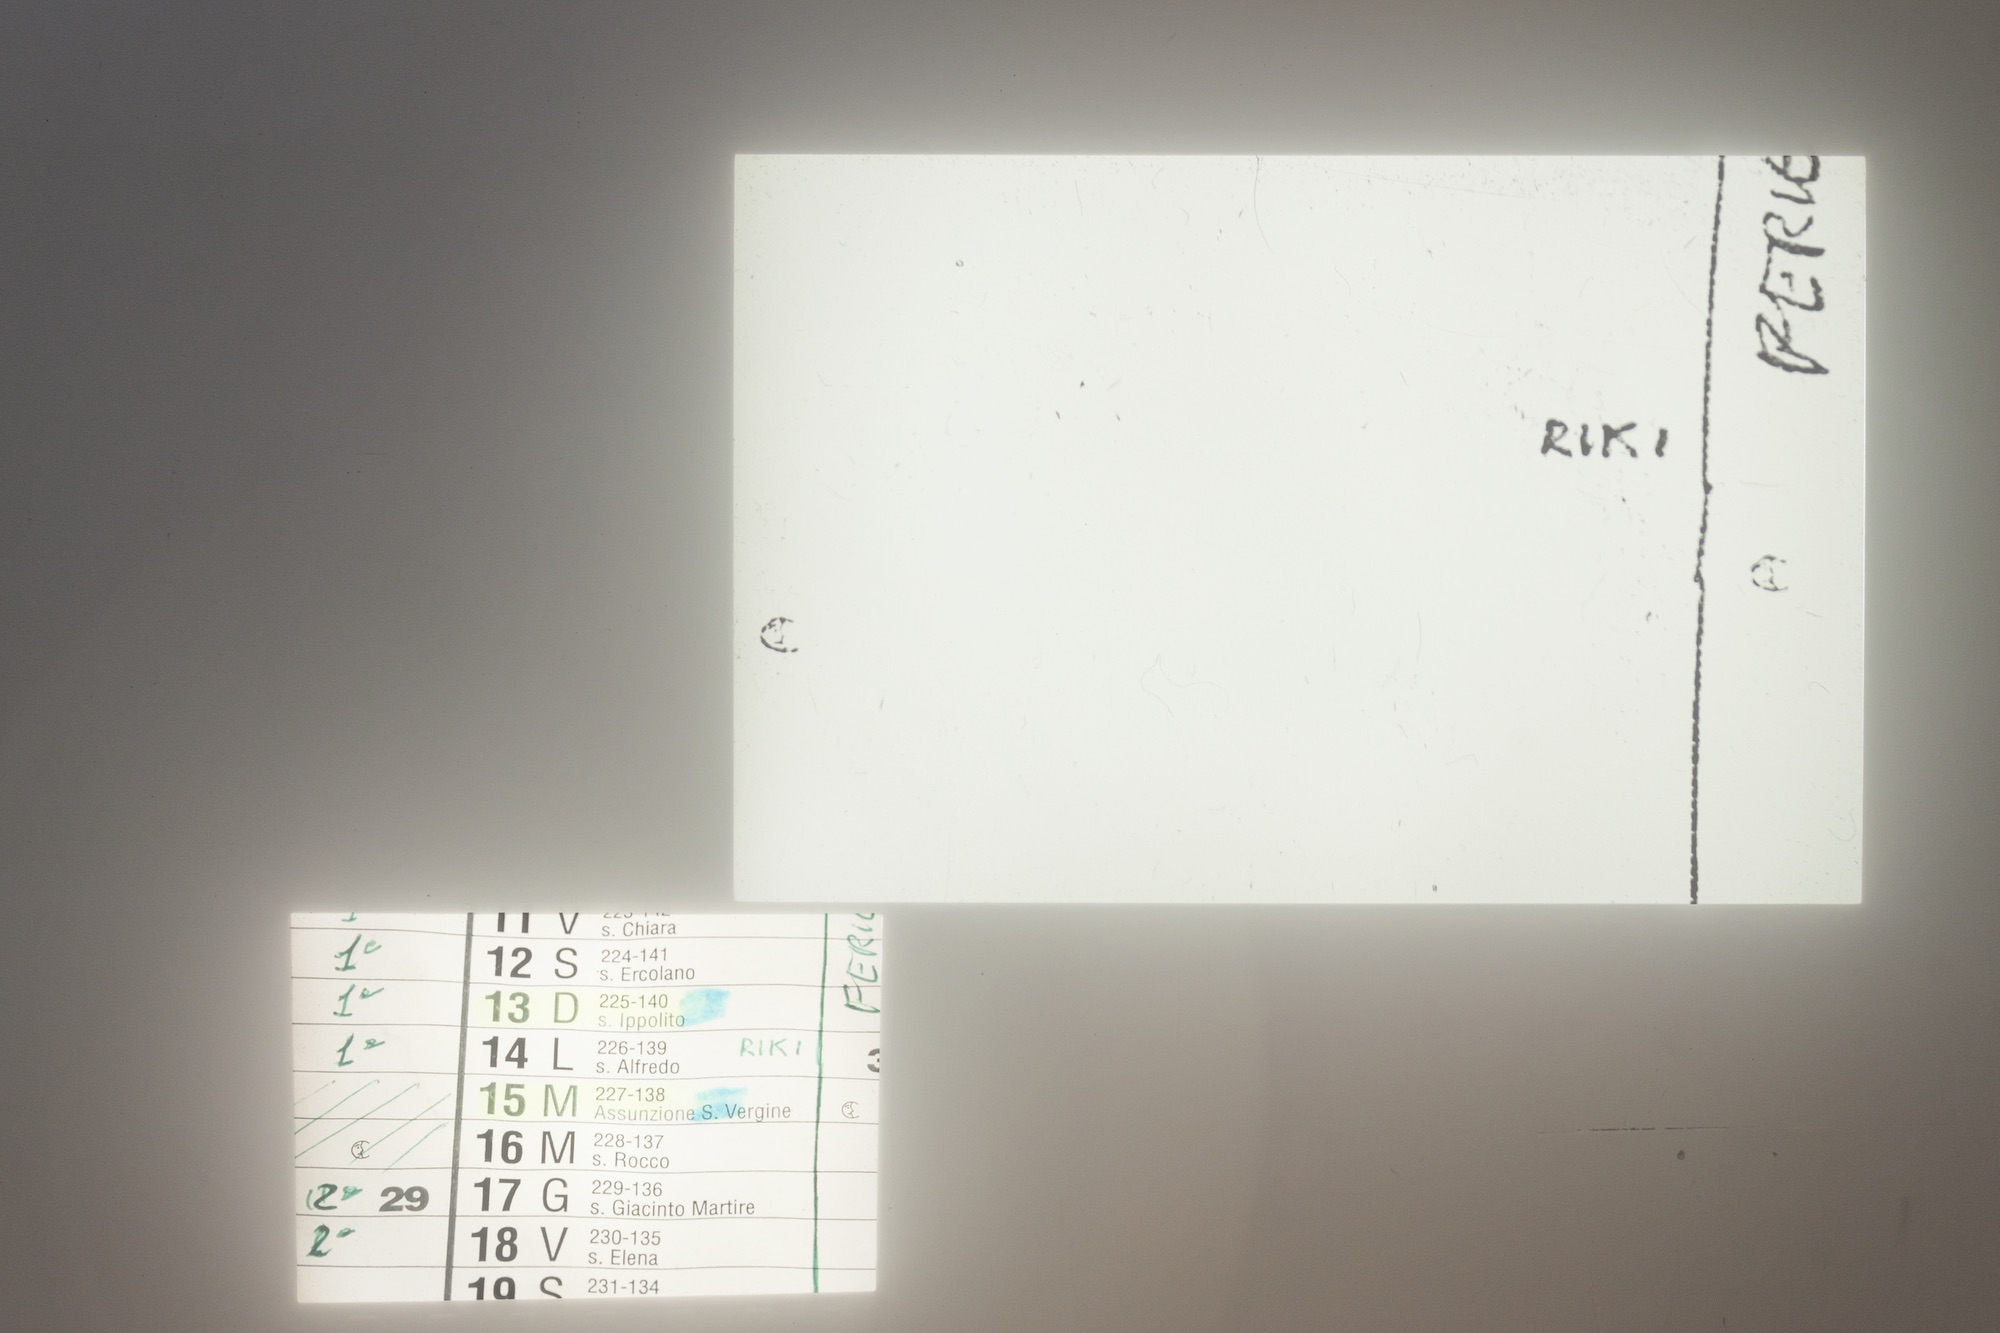 FERIE
RIKI
11 V
s. Chiara
1ª 12 S 224-141
s. Ercolano
1ª 13 D 225-140
s. Ippolito
FERIE
1ª 14 L 226-139
s. Alfredo
RIKI
3
15 M 227-138
Assunzione S. Vergine
16 M 228-137
s. Rocco
2ª 29 17 G 229-136
s. Giacinto Martire
2ª 18 V 230-135
s. Elena
19 S 231-134